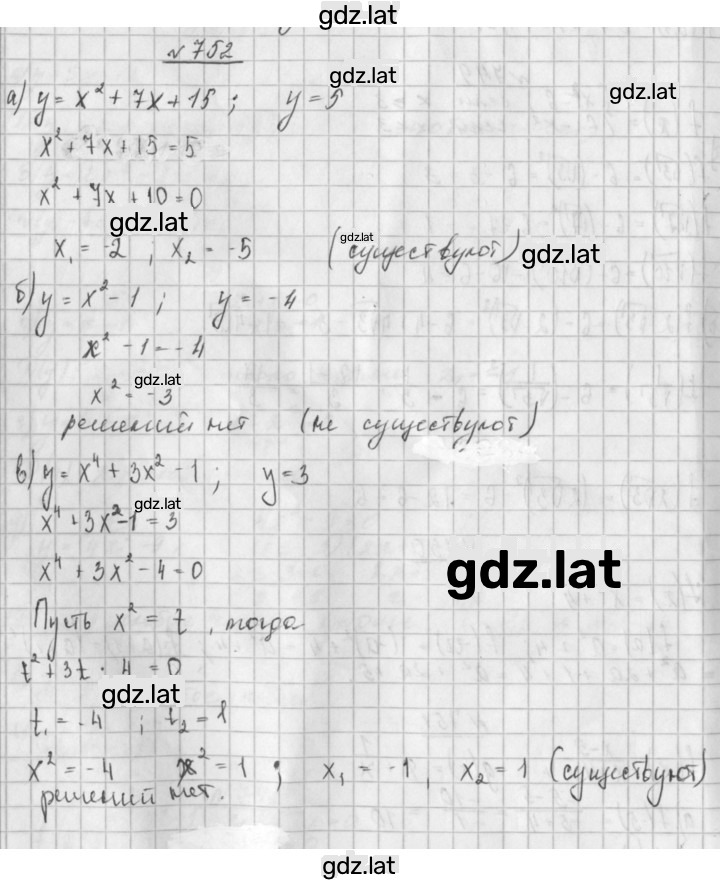 gdz.lat
№ 752
gdz.lat
gdz.lat
а) y = x² + 7x + 15 ; y = 5
x² + 7x + 15 = 5
x² + 7x + 10 = 0
gdz.lat
gdz.lat
x₁ = -2 ; x₂ = -5 (существуют)
gdz.lat
б) y = x² - 1 ; y = -4
x² - 1 = -4
gdz.lat
x² = -3
решений нет (не существуют)
в) y = x⁴ + 3x² - 1 ; y = 3
gdz.lat
x⁴ + 3x² - 1 = 3
gdz.lat
x⁴ + 3x² - 4 = 0
Пусть x² = t , тогда
t² + 3t - 4 = 0
gdz.lat
t₁ = -4 ; t₂ = 1
x² = -4 x² = 1 ; x₁ = -1 , x₂ = 1 (существуют)
решений нет.
gdz.lat